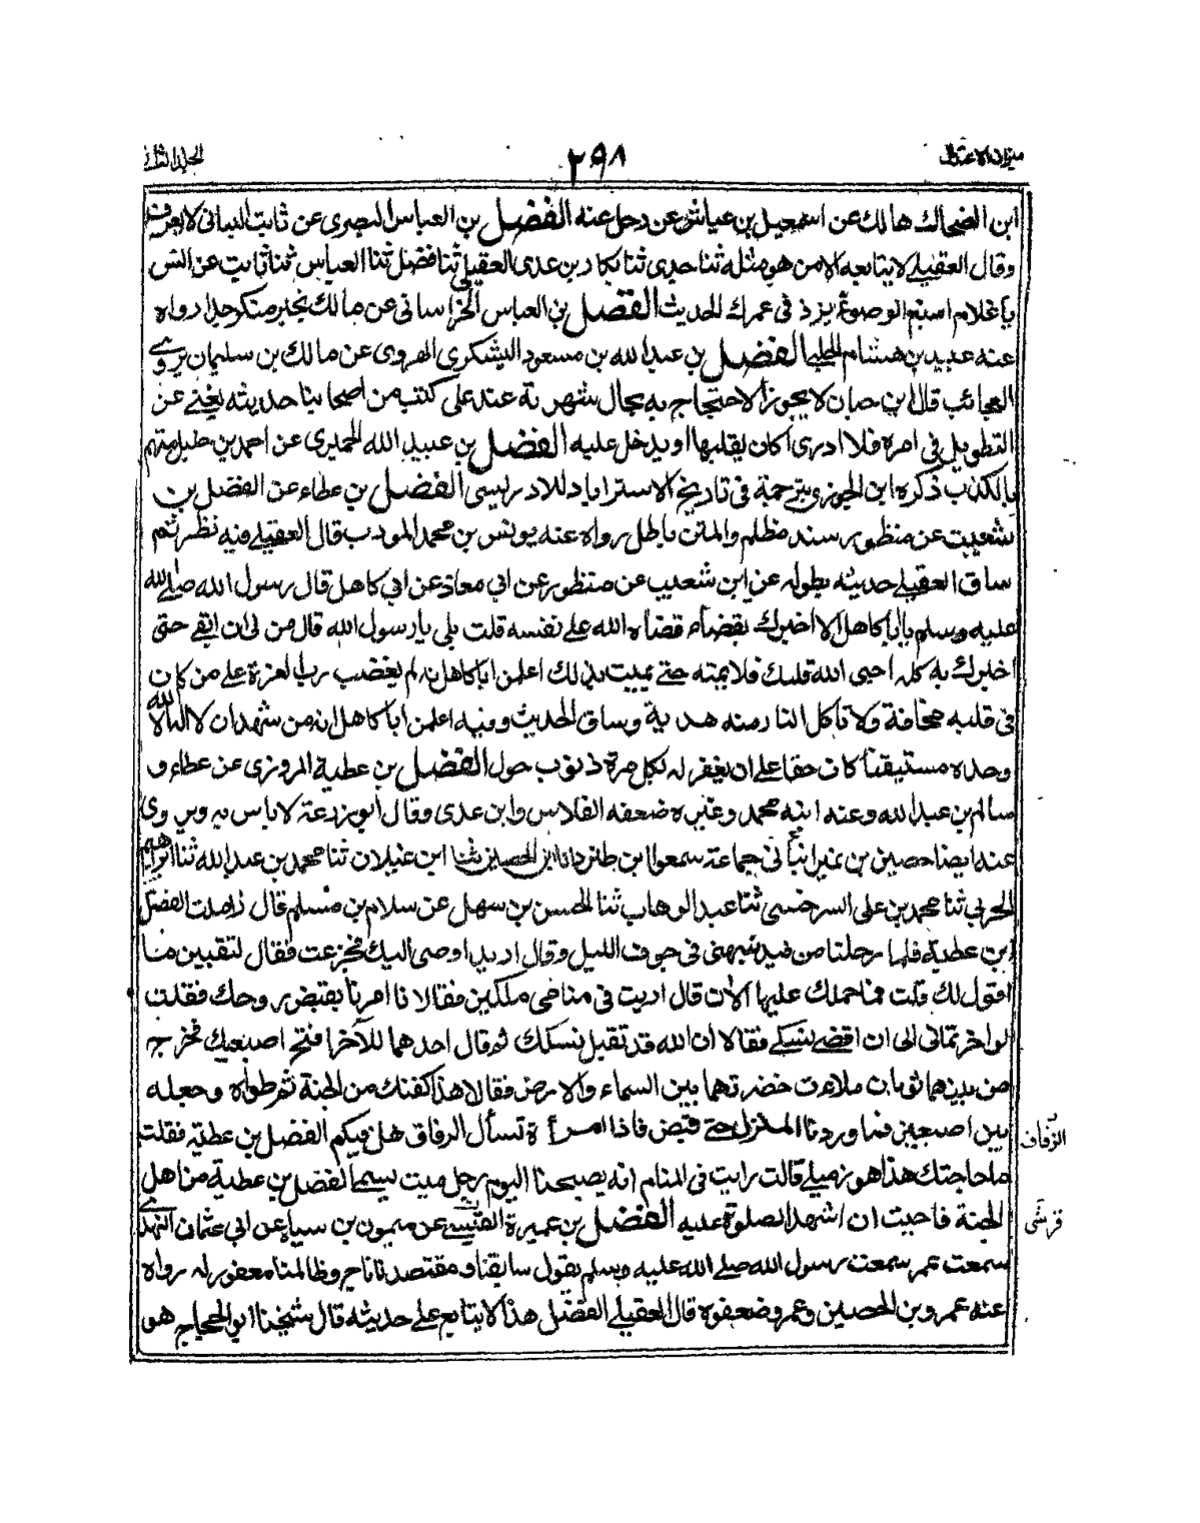 ميزان الاعتدال
٢٩٨
الجلد الثالث
ابن الضحاك هالك عن اسمعيل بن عياش عن رجل عنه الفضل بن العباس البصرى عن ثابت البنانى لا يعرف
وقال العقيلے لا يتابعه الا من هو مثله ثنا جدى ثنا بكار بن عدى العقيلي ثنا فضل ثنا العباس ثنا ثابت عن انس
يا غلام اسبغ الوضوء يزد فى عمرك الحديث الفضل بن العباس الخراسانى عن مالك بخبر منكر جدا رواه
عنه عبيد بن هشام الحلبي الفضل بن عبد الله بن مسعود اليشكرى الهروى عن مالك بن سليمان يروے
العجائب قال ابن حبان لا يجوز الاحتجاج به بحال شهرته عند على كتب من اصحابنا حديثه يغنے عن
التطويل فى امره فلا ادرى أكان يقلبها او يدخل عليه الفضل بن عبيد الله الحميرى عن احمد بن حنبل متهم
بالكذب ذكره ابن الجوزى بترجمة فى تاريخ الاستراباد للادريسى الفضل بن عطاء عن الفضل بن
شعيب عن منظور بسند مظلم والمتن باطل رواه عنه يونس بن محمد المودب قال العقيلے فيه نظر ثم
ساق العقيلے حديثه بطوله عن ابن شعيب عن منظور عن ابي معاذ عن ابي كاهل قال رسول الله صلے الله
عليه وسلم يا ابا كاهل الا اخبرك بقضاء قضاه الله علے نفسه قلت بلى يا رسول الله قال من لى ان ابقے حتى
اخبرك به كله احيى الله قلبك فلا يمته حتے يميت بدنك اعلمن ابا كاهل انه لم يغضب رب العزة علے من كان
فى قلبه مخافة ولا تاكل النار منه هدبة وساق الحديث وفيه اعلمن ابا كاهل انه من شهد ان لا اله الا الله
وحده مستيقنا كان حقا علے ان يغفر له بكل مرة ذنوب حول الفضل بن عطية المروزى عن عطاء و
سالم بن عبد الله وعنه ابنه محمد وغيره ضعفه الفلاس وابن عدى وقال ابو زرعة لا باس به وروى
عنه ايضا حصين بن نمير انبأنى جماعة سمعوا ابن طبرزد انا ابن الحصين ثنا ابن غيلان ثنا محمد بن عبد الله ثنا ابراهيم
الحربي ثنا محمد بن على السرخسى ثنا عبد الوهاب ثنا الحسن بن سهل عن سلام بن مسلم قال زاملت الفضل
ابن عطية فلما رحلنا من فيد نبهنى فى جوف الليل وقال اريد اوصى اليك فجزعت فقال لتقبلن ما
اقول لك قلت ما حملك عليها الآن قال اريت فى منامى ملكين فقالا انا امرنا بقبض روحك فقلت
لو اخرتمانى الى ان اقضے نسكے فقالا ان الله قد تقبل نسكك ثم قال احدهما للآخر افتح اصبعيك فخرج
من بينهما ثوبان ملات خضرتهما بين السماء والارض فقالا هذا كفنك من الجنة ثم طواه وجعله
بين اصبعين فما وردنا المنزل حتے قبض فاذا امرأة تسأل الرفاق هل فيكم الفضل بن عطية فقلت
ما حاجتك هذا هو زميلے قالت رايت فى المنام انه يصبحنا اليوم رجل ميت يسمے الفضل بن عطية من اهل
الجنة فاحببت ان اشهد الصلوة عليه الفضل بن عميرة القيسے عن ميمون بن سياه عن ابي عثمان النهدى
سمعت عمر سمعت رسول الله صلے الله عليه وسلم يقول سابقنا ومقتصدنا ناج وظالمنا مغفور له رواه
عنه عمرو بن الحصين وعمرو ضعفوه قال العقيلے الفضل هذا لا يتابع علے حديثه قال شيخنا ابو الحجاج هو
الزفاف
قرشى